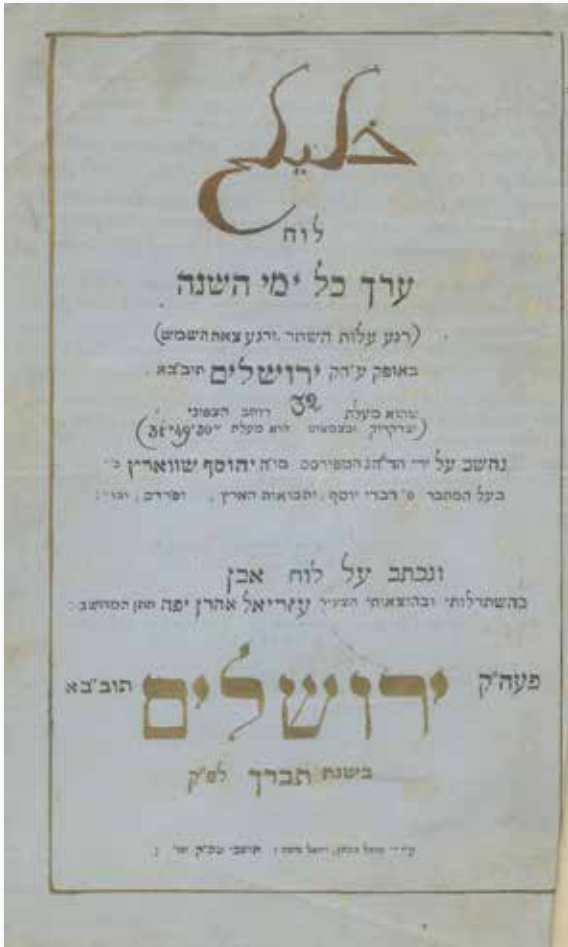 לוח
ערך כל ימי השנה
(רגע עלות השחר, ורגע צאת השמש)
באופק ע"הק ירושלים תוב"בא
שהוא מעלת 32 רוחב הצפוני
הוא מעלת 31°49'30")
נחשב על ידי המפורסם מו"ה יהוסף שווארץ נ"י
בעל המחבר ס' דברי יוסף, ותבואות הארץ, ופרדס, וכו'
ונכתב על לוח אבן
בהשתדלותי ובהוצאותי הצעיר עזריאל אהרן יפה חתן המחשב
פעה"ק ירושלים תוב"בא
בשנת תברך לפ"ק